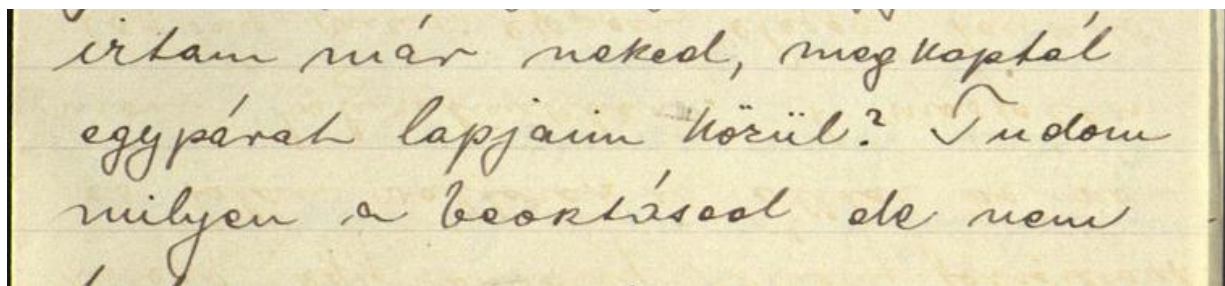 irtam már neked, megkaptál
egypárat lapjaim közül? Tudom
milyen a beosztásod de nem